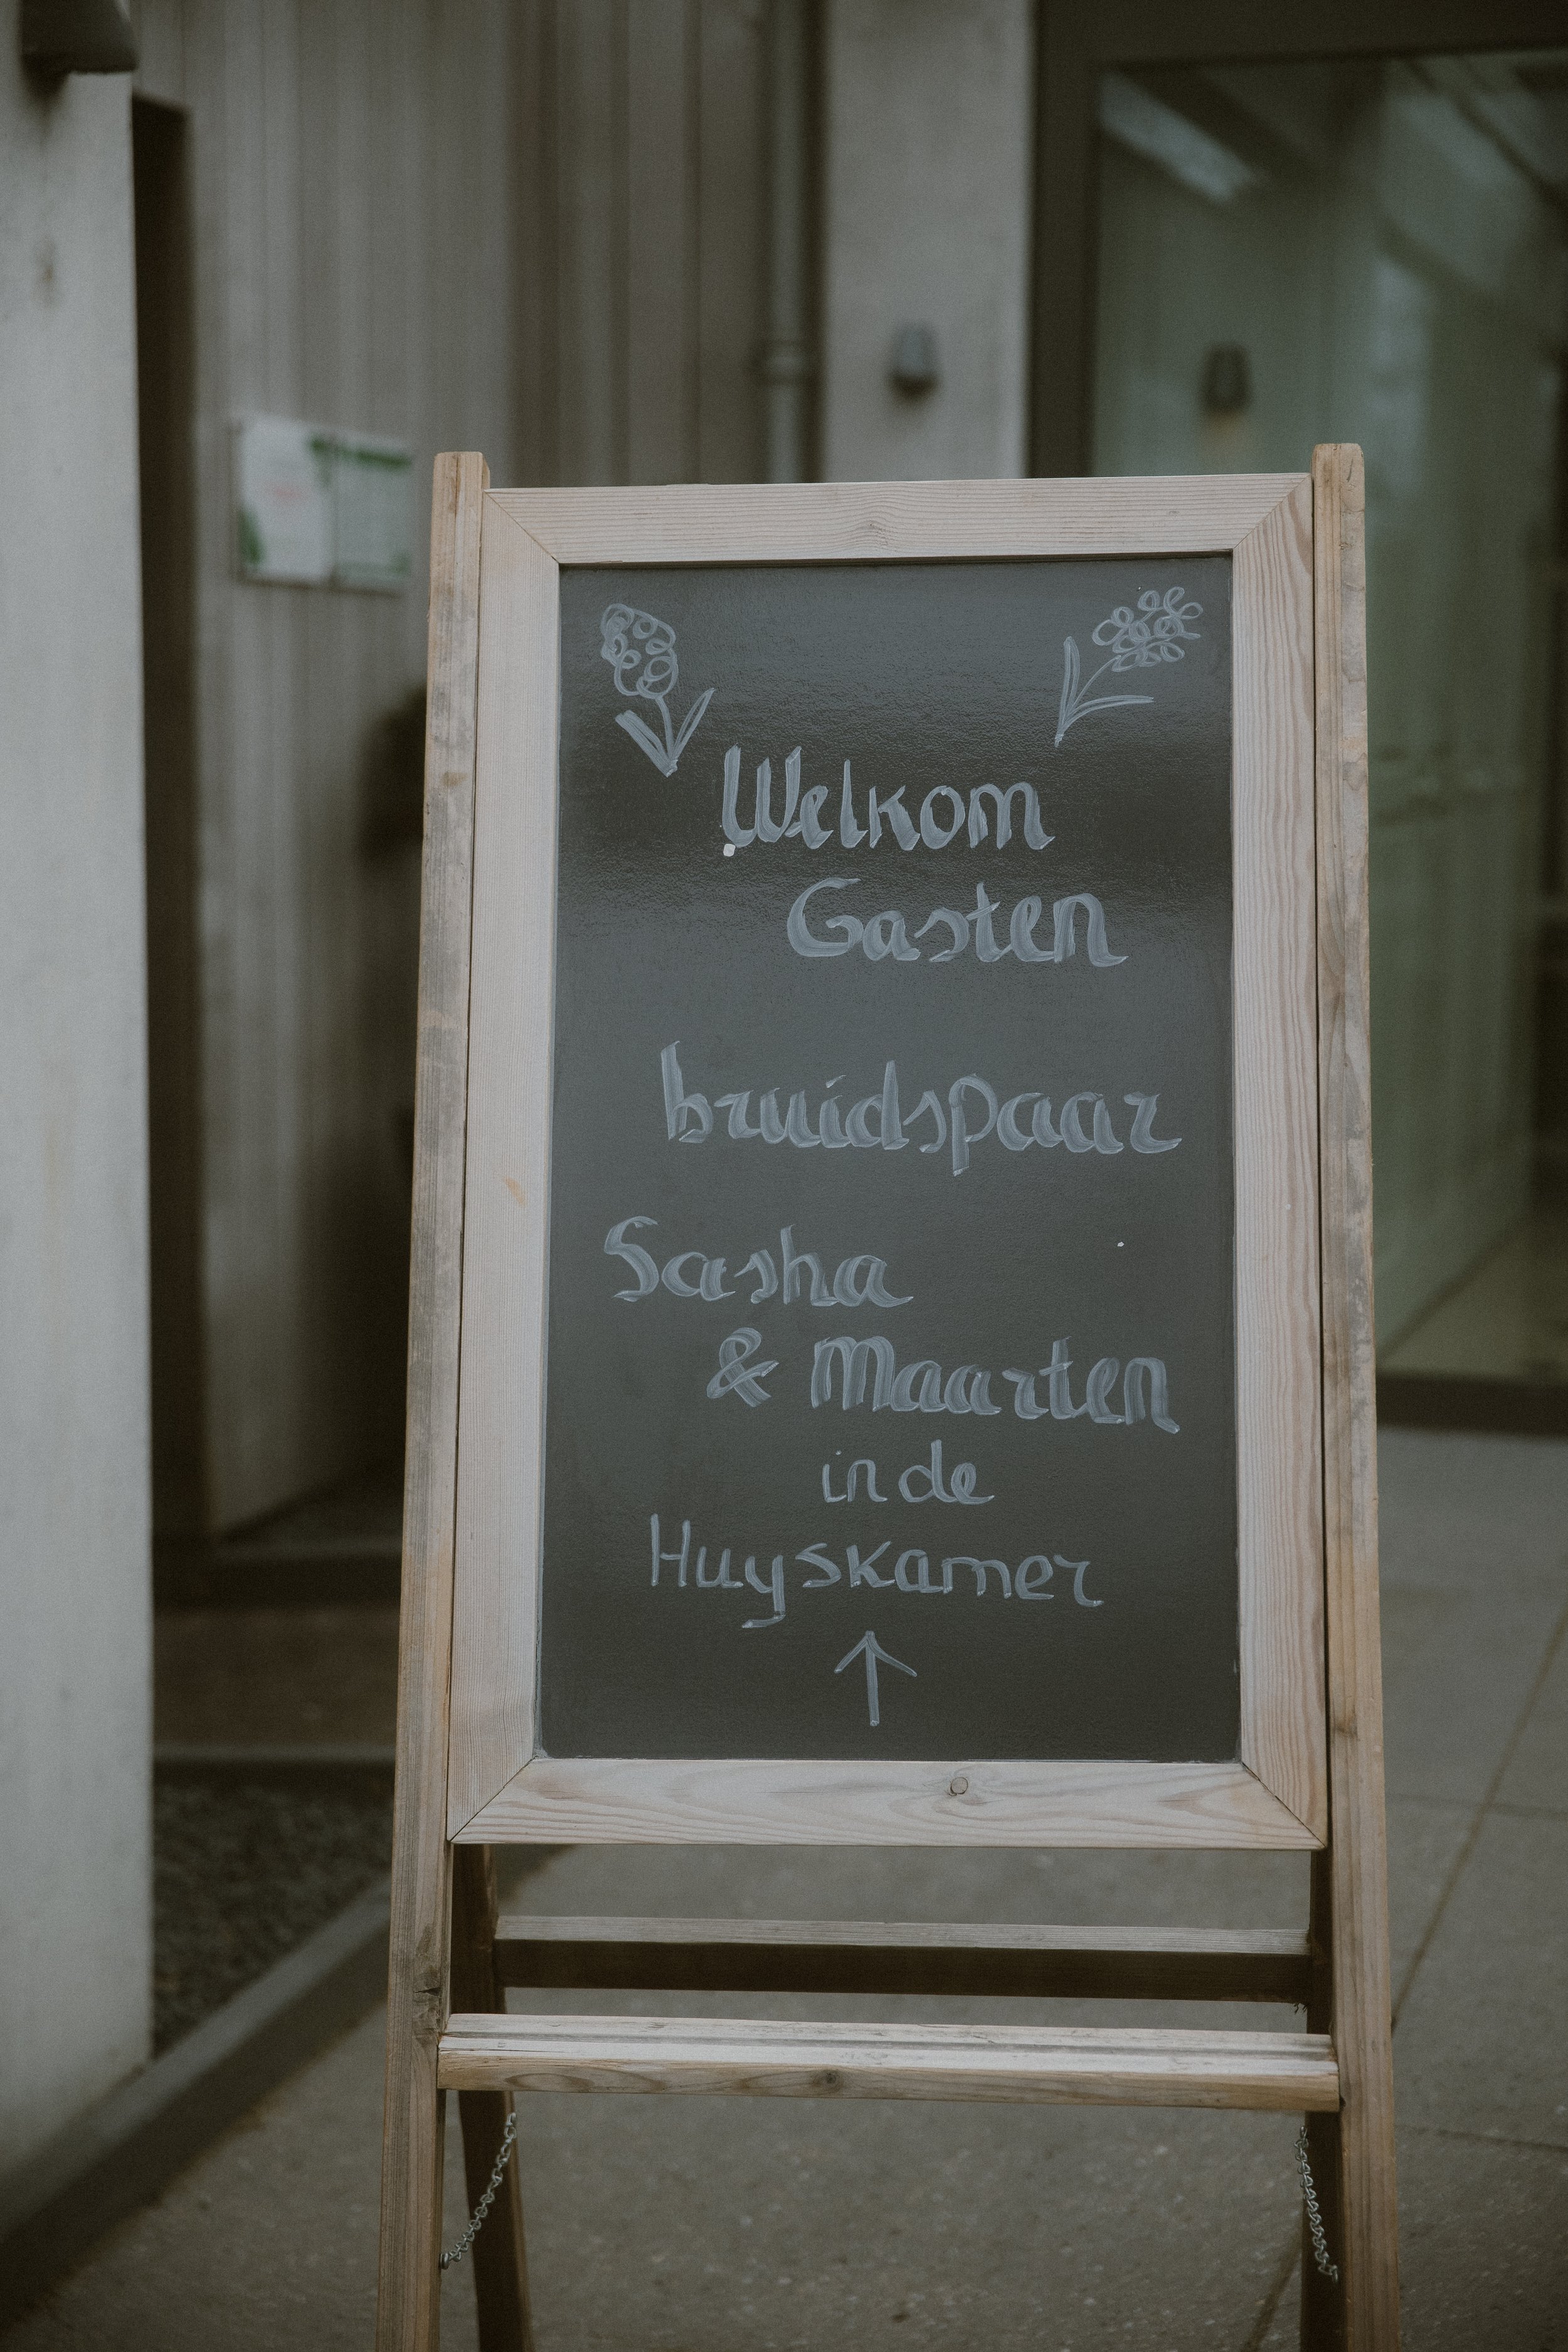 Welkom
Gasten
bruidspaar
Sasha
& Maarten
in de
Huyskamer